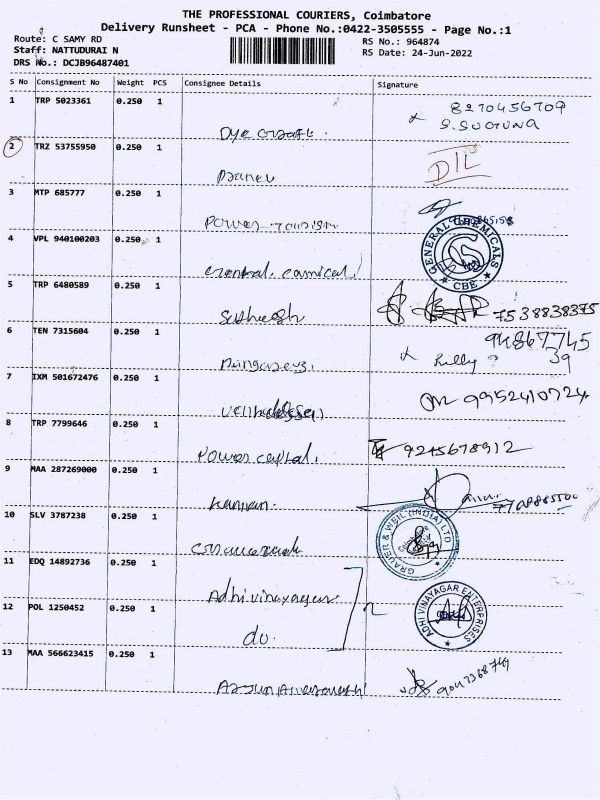 THE PROFESSIONAL COURIERS, Coimbatore
Delivery Runsheet - PCA - Phone No.:0422-3505555 - Page No.:1
Route: C SAMY RD
Staff: NATTUDURAI N
DRS No.: DCJB96487401
RS No.: 964874
RS Date: 24-Jun-2022
S No Consignment No Weight PCS Consignee Details Signature
1 TRP 5023361 0.250 1 8270456709
2 TRZ 53755950 0.250 1 DIL
3 MTP 685777 0.250 1 Power
4 VPL 940100203 0.250 1 GENERAL CHEMICALS CBE
5 TRP 6480589 0.250 1 Sutheesh 7538838375
6 TEN 7315604 0.250 1 9486774539
7 IXM 501672476 0.250 1 9952410724
8 TRP 7799646 0.250 1 Power capital. 9245678912
9 MAA 287269000 0.250 1 Kannan.
10 SLV 3787238 0.250 1 GRAUER & WEIL (INDIA) LTD
11 EDQ 14892736 0.250 1 Adhivinayagar
12 POL 1250452 0.250 1 do. ADHI VINAYAGAR ENTERPRISES
13 MAA 566623415 0.250 1